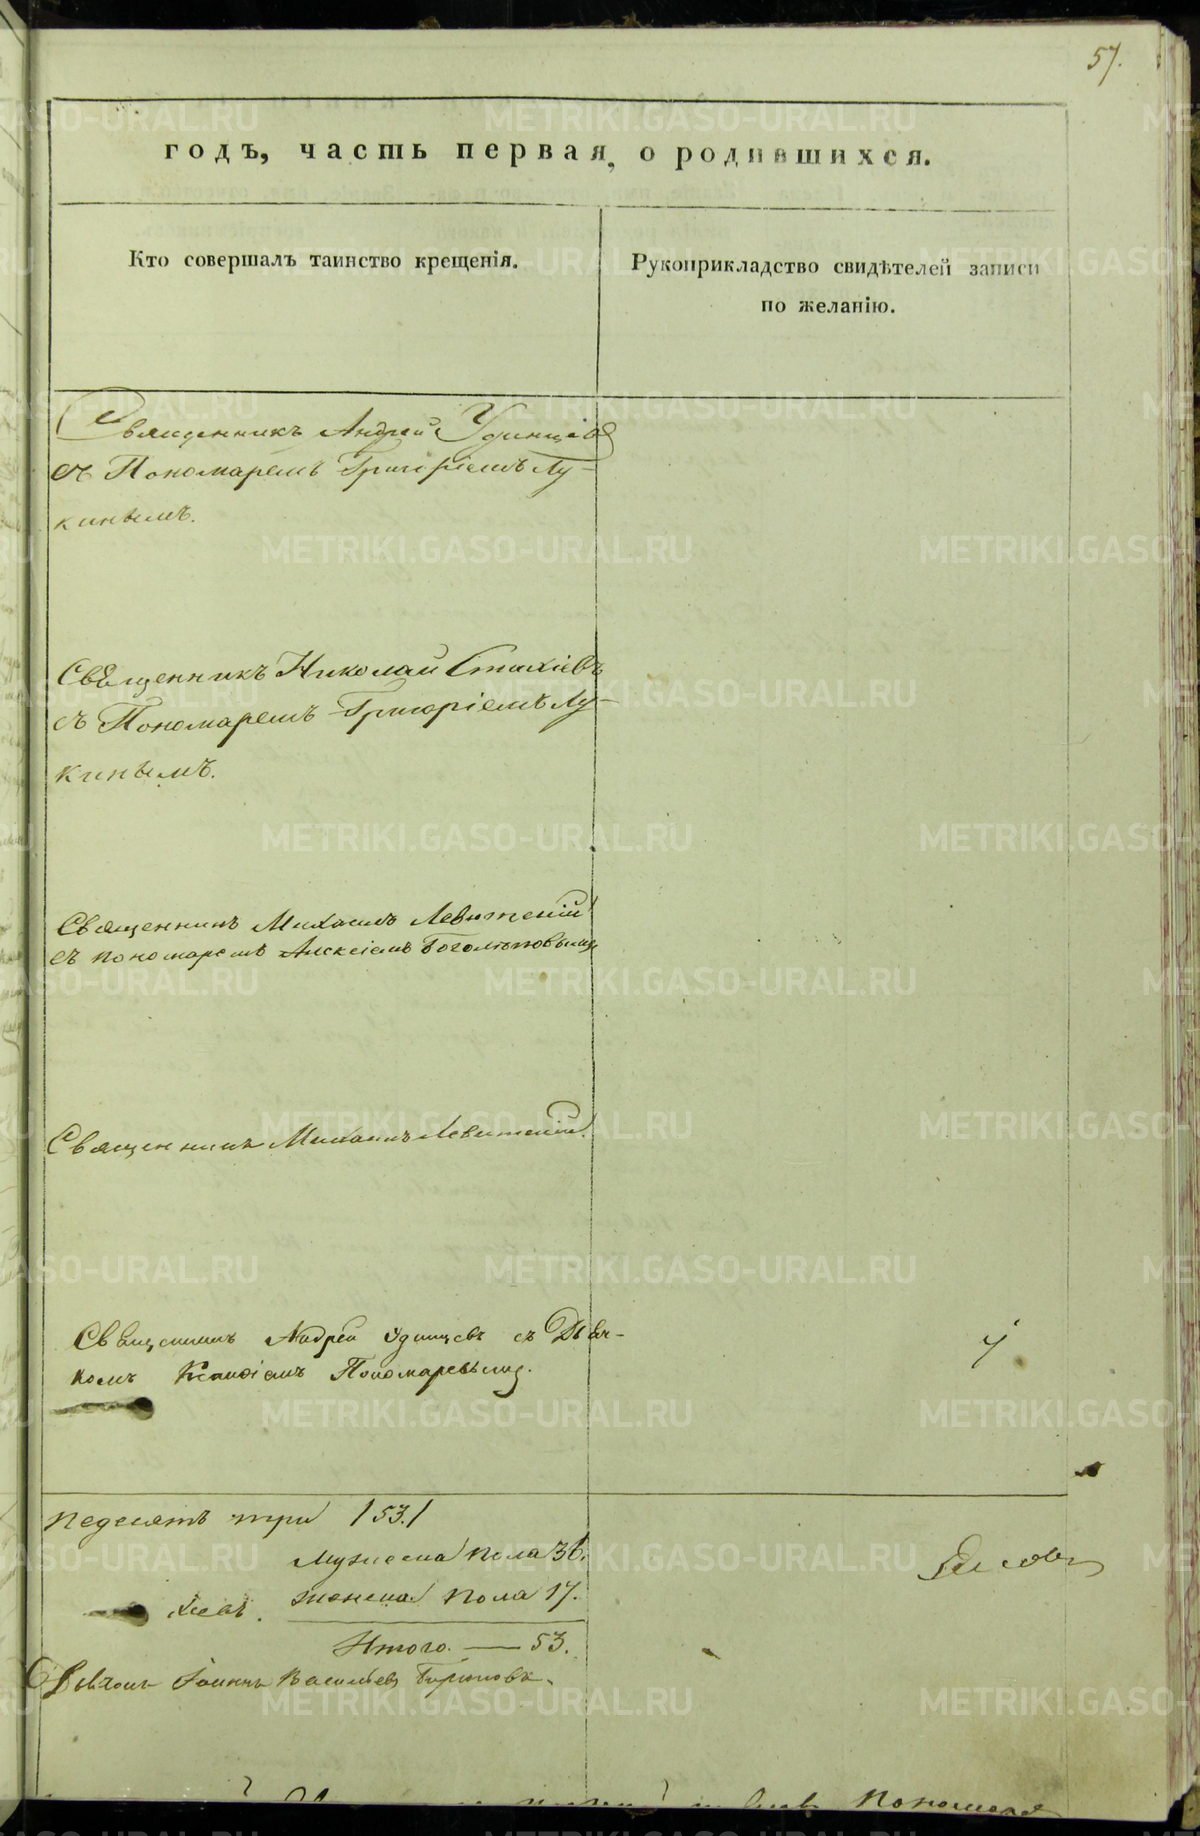 57.
годъ, часть первая, о родившихся.
Кто совершалъ таинство крещенія.
Рукоприкладство свидѣтелей записи
по желанію.
Священникъ Андрей Удинцевъ
съ Пономаремъ Григоріемъ Лу-
кинымъ.
Священникъ Николай Стахіевъ
съ Пономаремъ Григоріемъ Лу-
кинымъ.
Священникъ Михаилъ Левитскій
съ пономаремъ Алексіемъ Боголеповымъ
Священникъ Михаилъ Левитскій.
Священникъ Андрей Удинцевъ съ Дьяч-
комъ Пономаревымъ.
педесятъ три /53./
Мужеска пола 36.
Женска пола 17.
Итого. — 53.
Іоаннъ Васильевъ
Пономарь
METRIKI.GASO-URAL.RU